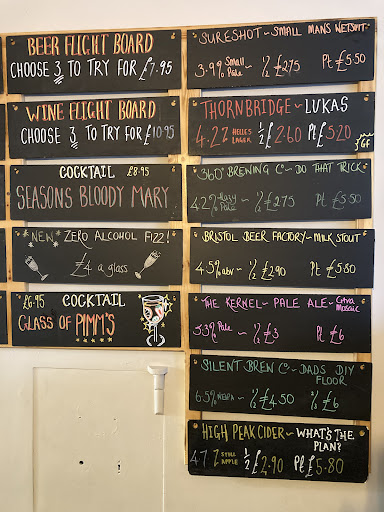 BEER FLIGHT BOARD
CHOOSE 3 TO TRY FOR £7.95
WINE FLIGHT BOARD
CHOOSE 3 TO TRY FOR £10.95
COCKTAIL £8.95
SEASONS BLOODY MARY
*NEW* ZERO ALCOHOL FIZZ!
£4 a glass
£6.95 COCKTAIL
GLASS OF PIMM'S
SURESHOT ~ SMALL MANS WETSUIT
3.9% Small Pale ~ 1/2 £2.75 Pt £5.50
THORNBRIDGE ~ LUKAS
4.2% HELLES LAGER 1/2 £2.60 Pt £5.20 GF
360° BREWING Co ~ DO THAT TRICK
4.2% Hazy Pale ~ 1/2 £2.75 Pt £5.50
BRISTOL BEER FACTORY ~ MILK STOUT
4.5% abv ~ 1/2 £2.90 Pt £5.80
THE KERNEL ~ PALE ALE ~ Citra Mosaic
5.3% Pale ~ 1/2 £3 Pt £6
SILENT BREW Co ~ DADS DIY
FLOOR
6.5% WEIPA ~ 1/2 £4.50 2/3 £6
HIGH PEAK CIDER ~ WHAT'S THE
PLAN?
4.7% STILL APPLE 1/2 £2.90 Pt £5.80